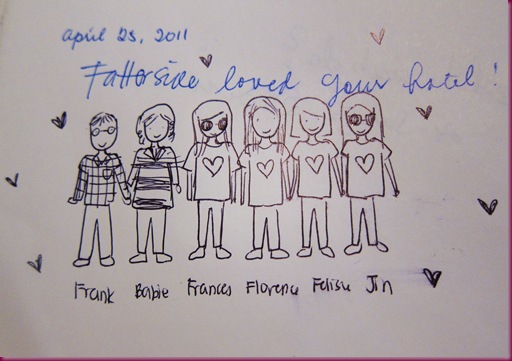 April 25, 2011
Fattorside loved your hotel!
Frank Babie Frances Florence Felisu Jin